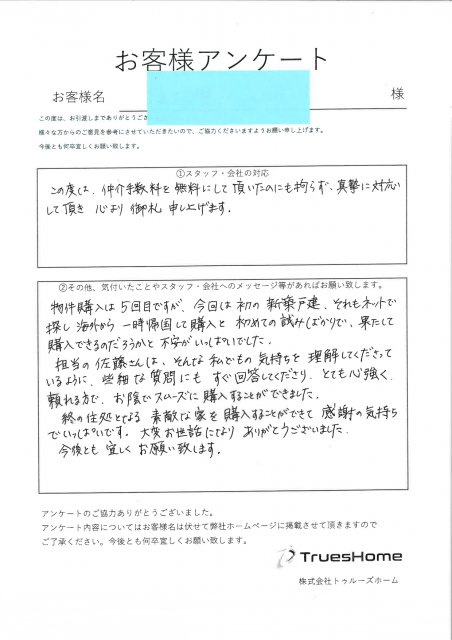 お客様アンケート
お客様名
様
この度は、お引渡しまでありがとうござ
様々な方からのご意見を参考にさせていただきたいので、ご協力くださいますようお願い申し上げます。
今後とも何卒宜しくお願い致します。
①スタッフ・会社の対応
この度は、仲介手数料を無料にして頂いたのにも拘らず、真摯に対応
して頂き 心より御礼申し上げます。
②その他、気付いたことやスタッフ・会社へのメッセージ等があればお願い致します。
物件購入は5回目ですが、今回は初の新築戸建、それもネットで
探し海外から一時帰国して購入と初めての試みばかりで、果たして
購入できるのだろうかと不安がいっぱいでした。
担当の佐藤さんは、そんな私どもの気持ちを理解してくださって
いるように、些細な質問にもすぐ回答してくださり、とても心強く、
頼れる方で、お陰でスムーズに購入することができました。
終の住処となる素敵な家を購入することができて感謝の気持ち
でいっぱいです。大変お世話になりありがとうございました。
今後とも宜しくお願い致します。
アンケートのご協力ありがとうございました。
アンケート内容についてはお客様名は伏せて弊社ホームページに掲載させて頂きますので
ご了承ください。今後とも何卒宜しくお願い致します。
TruesHome
株式会社トゥルーズホーム